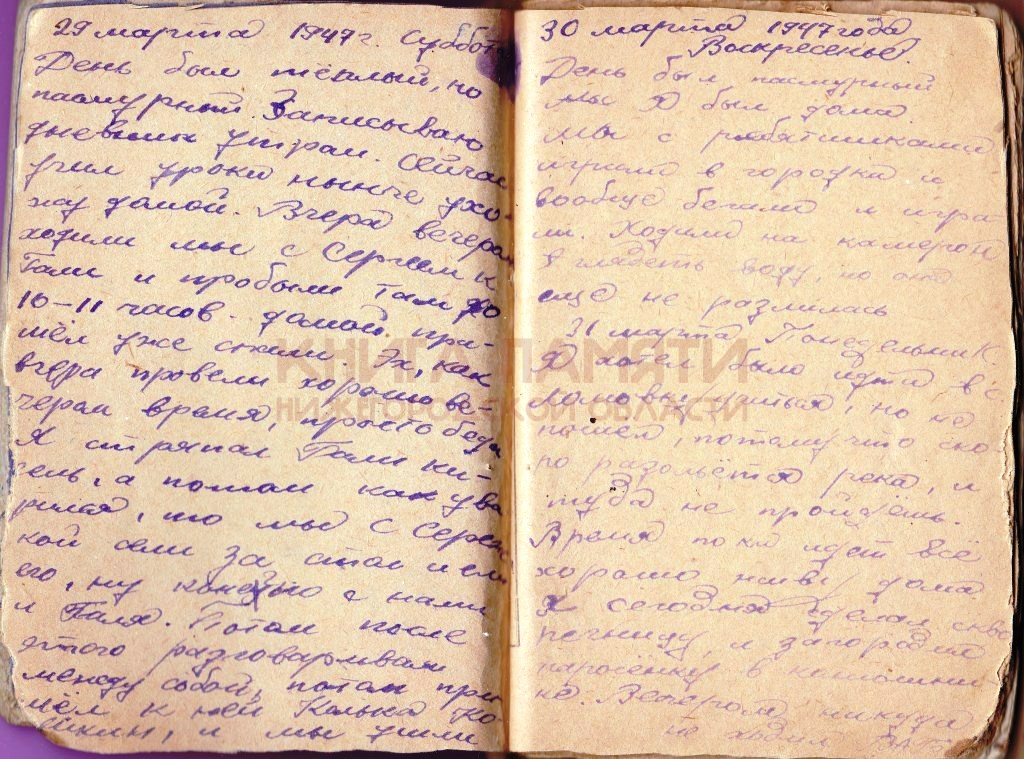 29 марта 1947 г. Суббот
День был тёплый, но
пасмурный. Записываю
дневник утром. Сейчас
учил уроки нынче ухо-
жу домой. Вчера вечером
ходили мы с Сергеем к
Гали и пробыли там до
10-11 часов. домой при-
шёл уже спали. Эх, как
вчера провели хорошо ве-
чером время, просто беда
Я стряпал Гали ки-
сель, а потом как ува
рился, то мы с Сереж
кой сели за стол и ели
его, ну конечно с нами
и Галя. Потом после
этого разговаривали
между собой, потом при
шёл к ней Колька Ко-
и мы ушли
30 марта 1947 года
Воскресенье.
День был пасмурный
Мы Я был дома.
Мы с ребятишками
играли в городки и
вообще бегали и игра-
ли. Ходили на
глядеть воду, но она
ещё не разлилась
31 марта Понедельник.
Я хотел было идти в
учиться, но не
пошёл, потому что ско-
ро разольётся река, и
туда не пройдёшь.
Время пока идёт всё
хорошо живу дома
Я сегодня сделал скво
речницу, и загородил
в
не. Вечером никуда
не ходил
КНИГА ПАМЯТИ
НИЖЕГОРОДСКОЙ ОБЛАСТИ